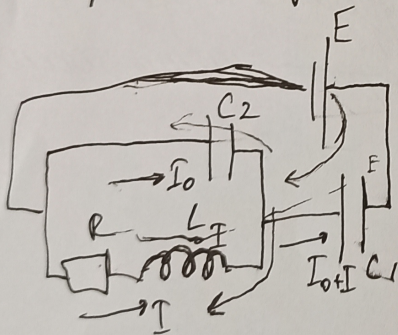 E
C2
I₀
E
R
L
I
I₀+I
C₁
I